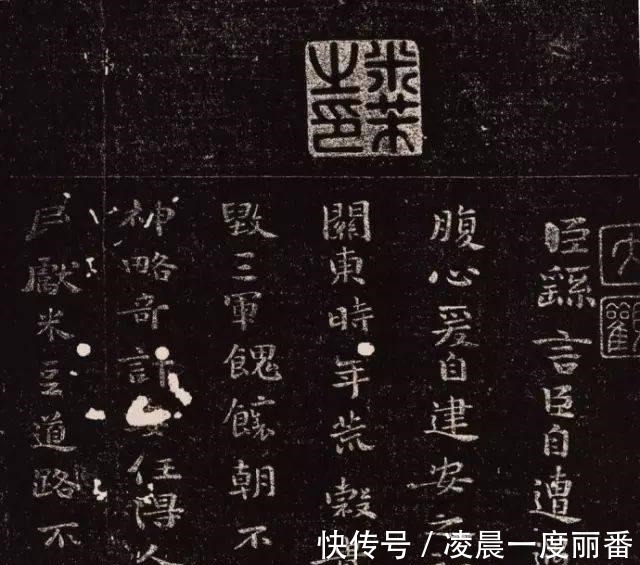 米芾之印
大觀
臣繇言臣自遭
腹心爰自建安之
關東時年荒穀
毀三軍餽饟朝不
神略奇計任得人
民獻米豆道路不
快传号/凌晨一度丽番